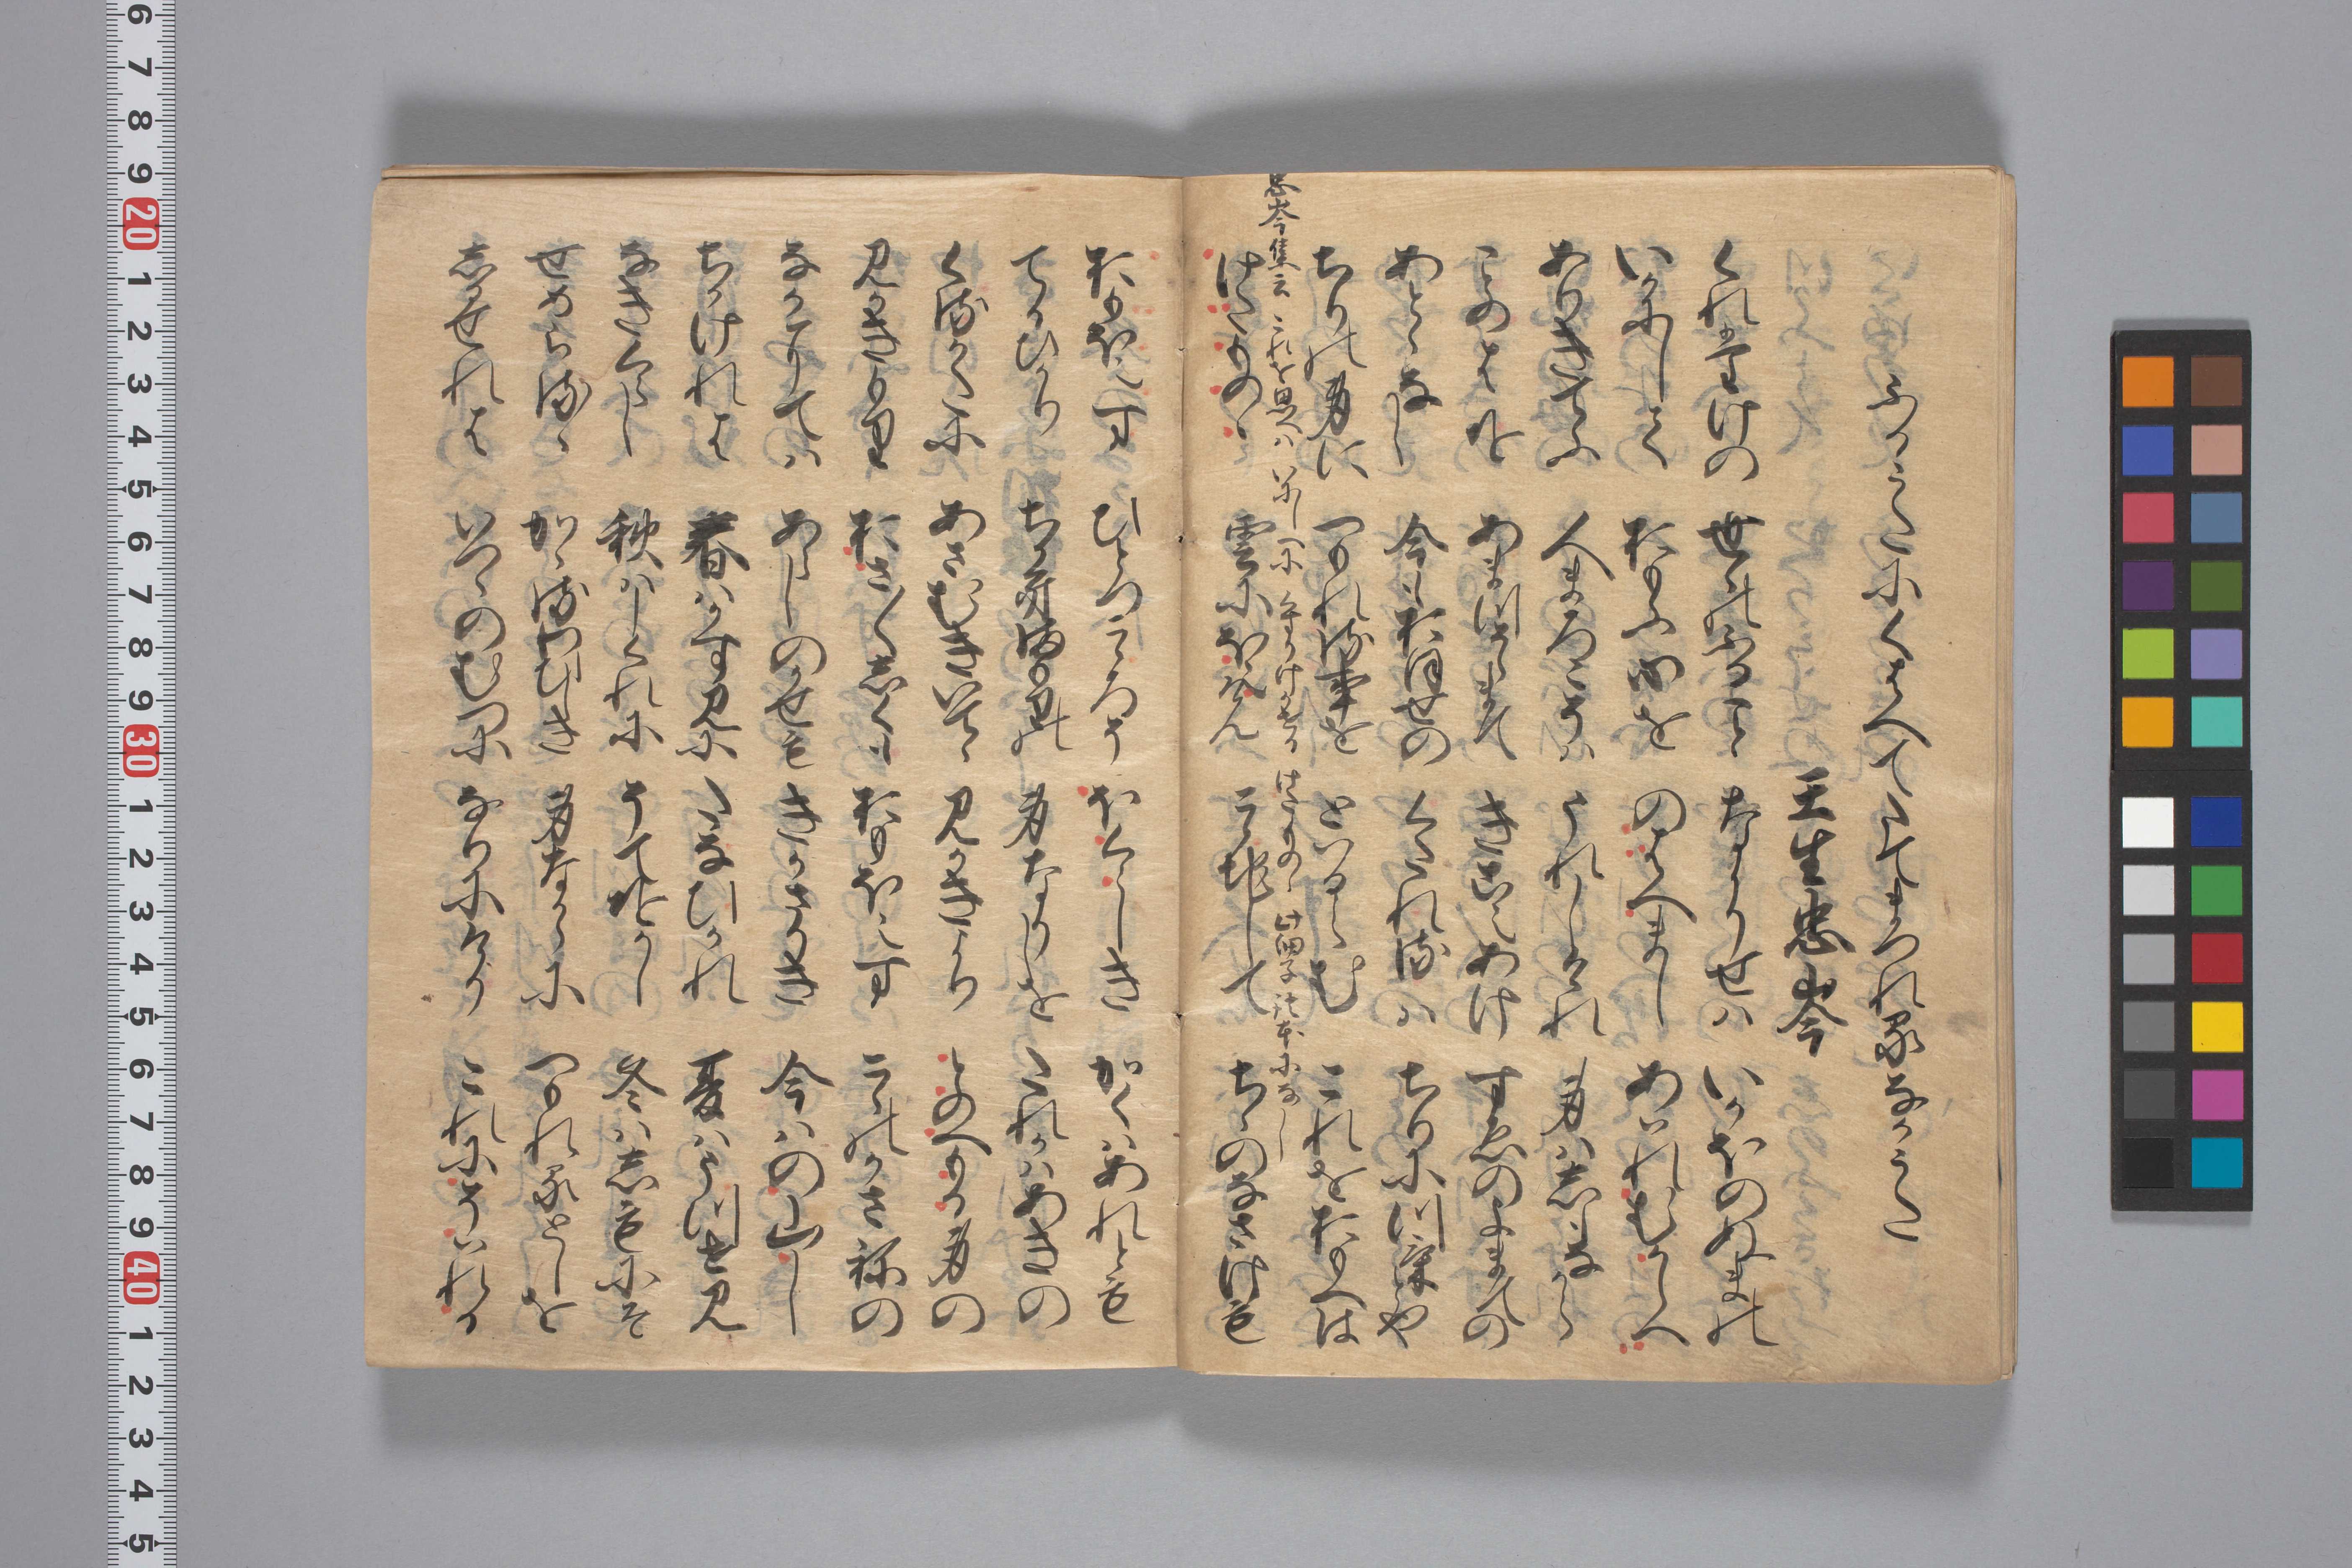 ふるうたにくはへてたてまつれるなかうた
壬生忠岑
くれたけの 世ゝのふること なかりせは いかほのぬまの
いかにして おもふ心を のはへまし あはれむかしへ
ありきてふ 人まろこそは うれしけれ 身はしもなから
ことのはを あまつそらまて きこえあけ すゑのよまての
あとゝなし 今もおほせの くたれるは ちりにつけとや
ちりの身に つもれる事を とはるらむ これをおもへは
忠岑集云 これを思へは いにしへに けかせる けたものゝ 本になし
けたものゝ 雲にほえけん こゝ地して ちゝのなさけも
おもほえす ひとつこゝろそ ほこらしき かくはあれとも
てるひかり ちかきまもりの 身なりしを たれかはあきの
くるかたに あさむきいてゝ みかきより とのへもる身の
みかきもり おさ〳〵しくも おもほえす こゝのかさねの
なかにては あらしのかせも きかさりき 今はの山し
ちかけれは 春はかすみに たなひかれ 夏はうつせみ
なきくらし 秋はしくれに そてをかし 冬はしもにそ
せめらるゝ かゝるわひしき 身なからに つもれるとしを
しるせれは いつゝのむつに なりにけり これにそはれる